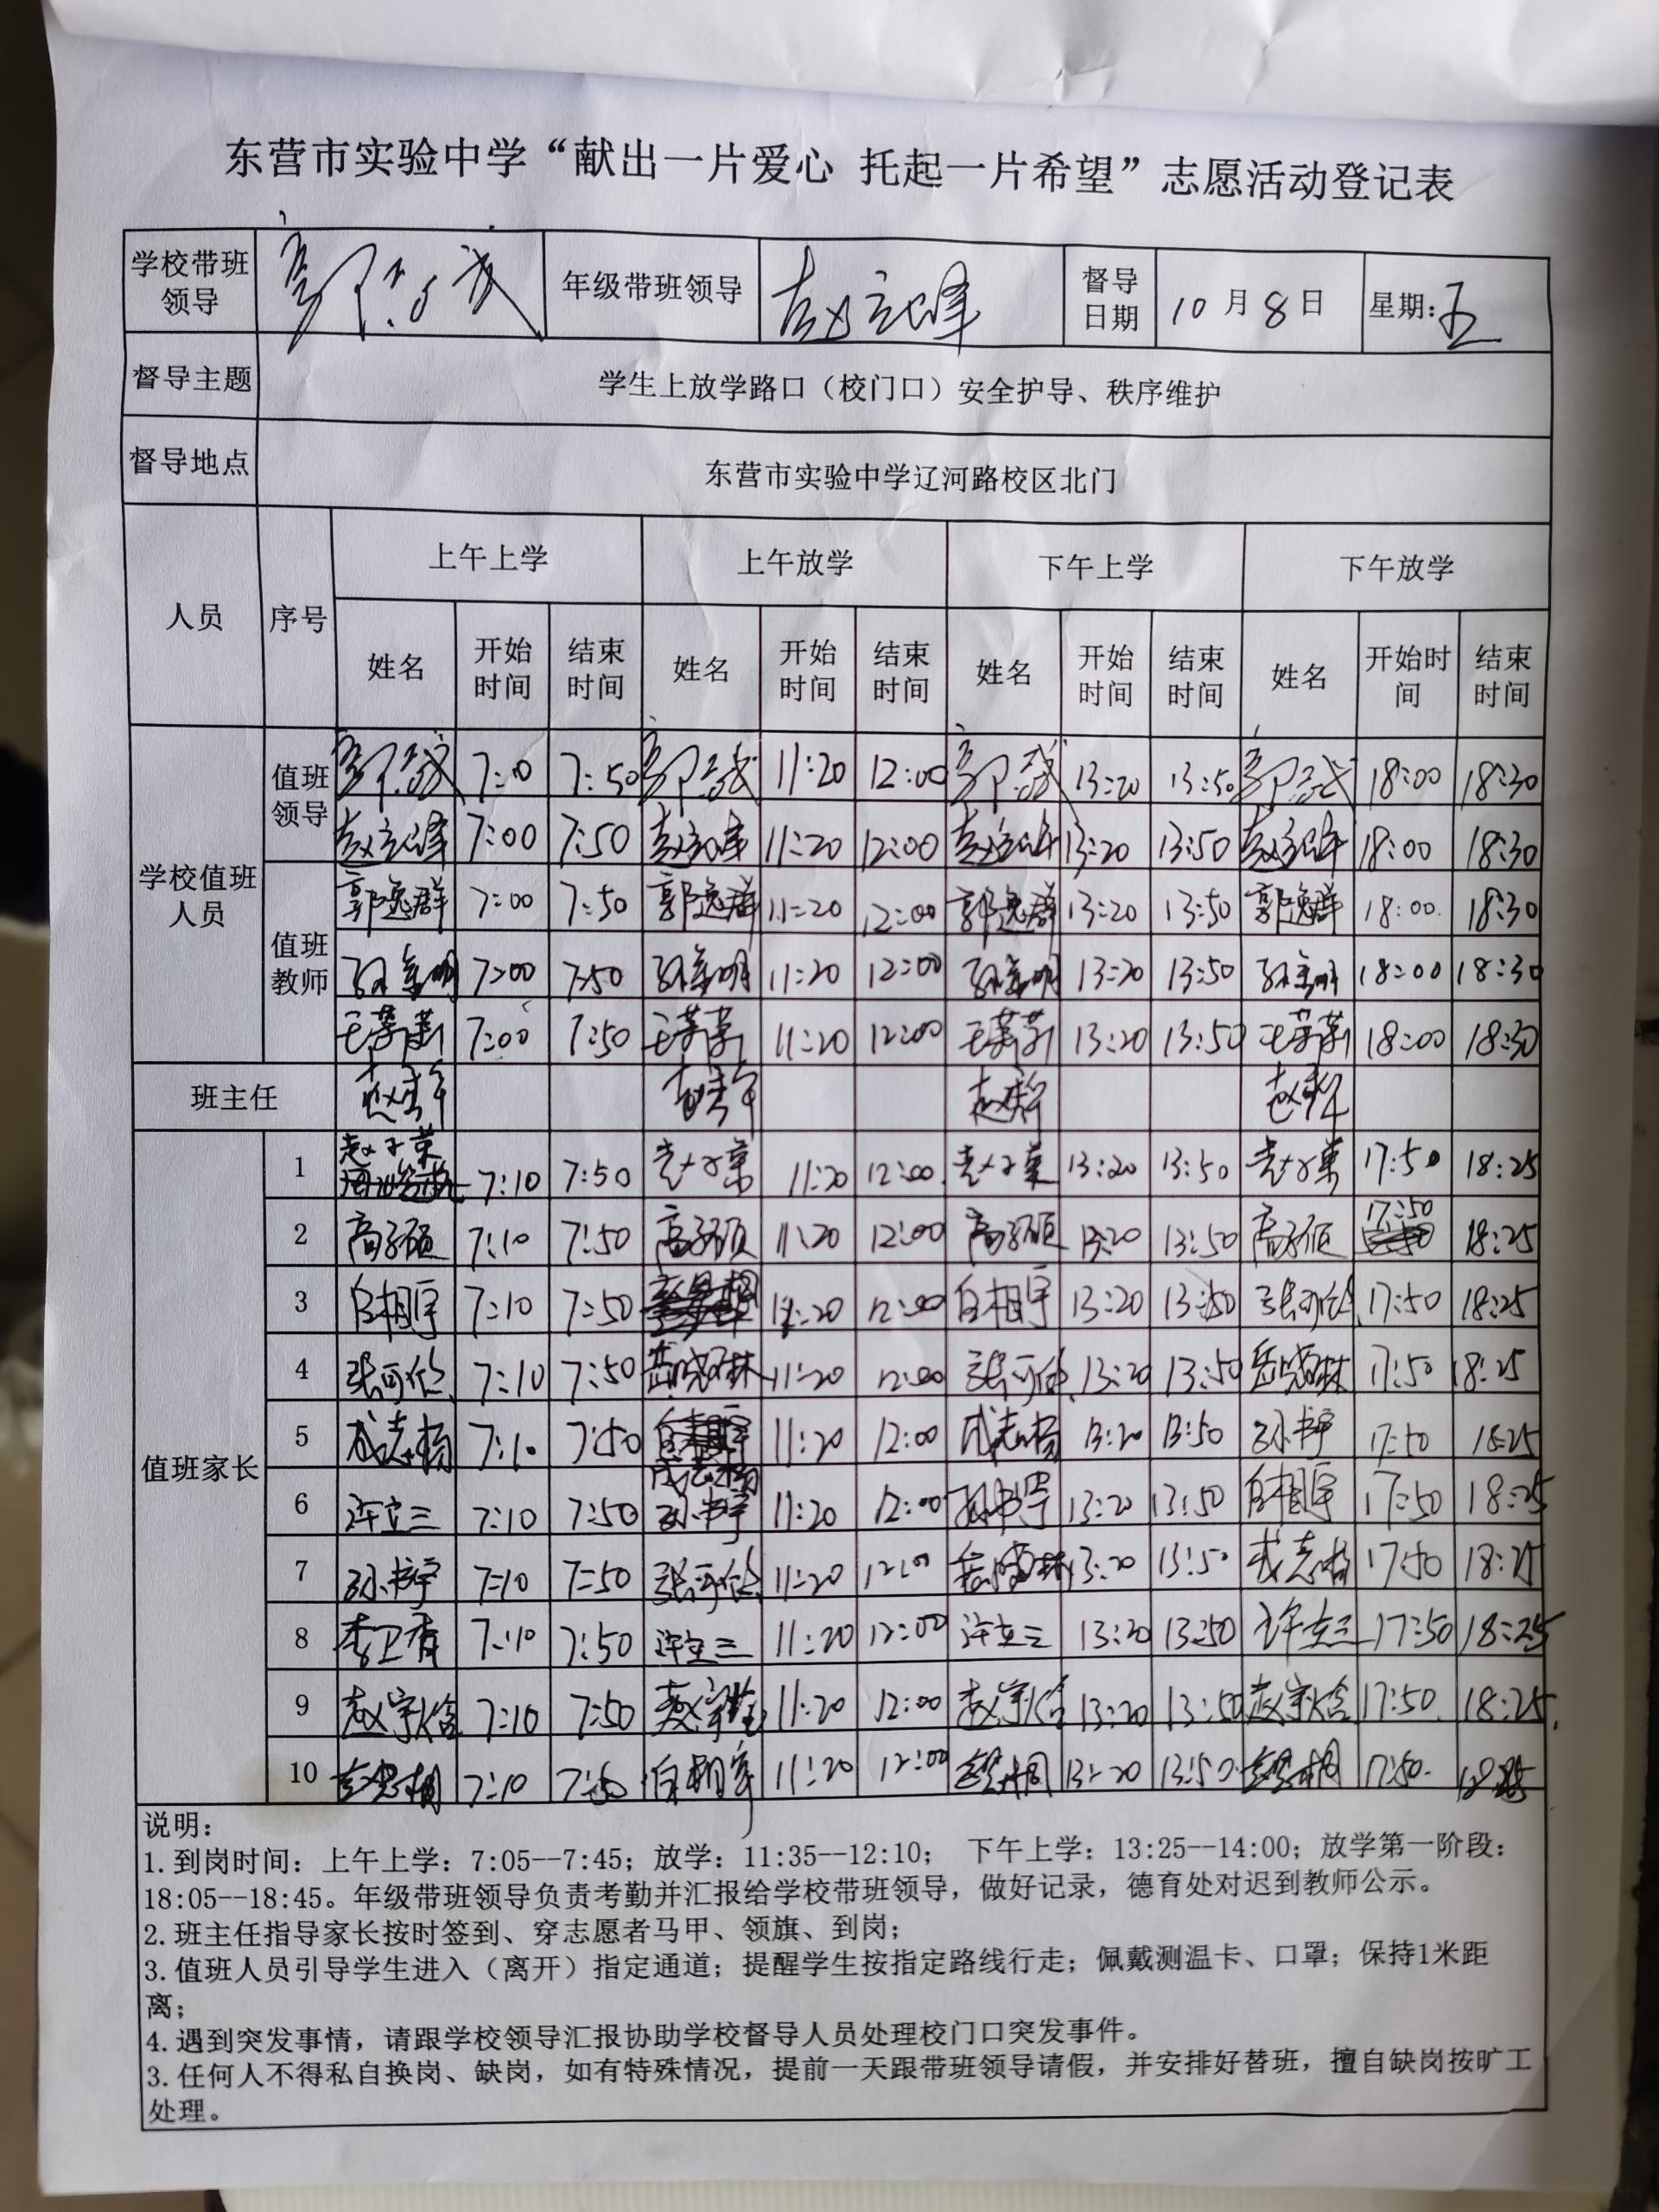 东营市实验中学“献出一片爱心 托起一片希望”志愿活动登记表
学校带班领导 年级带班领导 赵立峰 督导日期 10月8日 星期:五
督导主题 学生上放学路口（校门口）安全护导、秩序维护
督导地点 东营市实验中学辽河路校区北门
人员 序号 上午上学 上午放学 下午上学 下午放学
姓名 开始时间 结束时间 姓名 开始时间 结束时间 姓名 开始时间 结束时间 姓名 开始时间 结束时间
学校值班人员
值班领导 7:00 7:50 11:20 12:00 13:20 13:50 18:00 18:30
赵立峰 7:00 7:50 赵立峰 11:20 12:00 赵立峰 13:20 13:50 赵立峰 18:00 18:30
值班教师 郭逸群 7:00 7:50 郭逸群 11:20 12:00 郭逸群 13:20 13:50 郭逸群 18:00 18:30
7:00 7:50 11:20 12:00 13:20 13:50 18:00 18:30
7:00 7:50 11:20 12:00 13:20 13:50 18:00 18:30
班主任
值班家长
1 7:10 7:50 11:20 12:00 13:20 13:50 17:50 18:25
2 高子硕 7:10 7:50 高子硕 11:20 12:00 高子硕 13:20 13:50 高子硕 17:50 18:25
3 白相宇 7:10 7:50 11:20 12:00 白相宇 13:20 13:50 张可伦 17:50 18:25
4 张可伦 7:10 7:50 岳晓琳 11:20 12:00 张可伦 13:20 13:50 岳晓琳 17:50 18:25
5 成志杨 7:10 7:50 成志杨 11:20 12:00 成志杨 13:20 13:50 孙书宇 17:50 18:25
6 许立三 7:10 7:50 孙书宇 11:20 12:00 孙书宇 13:20 13:50 白相宇 17:50 18:25
7 孙书宇 7:10 7:50 张可伦 11:20 12:00 岳晓琳 13:20 13:50 成志杨 17:50 18:25
8 李卫青 7:10 7:50 许立三 11:20 12:00 许立三 13:20 13:50 许立三 17:50 18:25
9 赵宇含 7:10 7:50 11:20 12:00 13:20 13:50 17:50 18:25
10 7:10 7:50 白相宇 11:20 12:00 13:20 13:50 17:50 18:25
说明：
1.到岗时间：上午上学：7:05--7:45；放学：11:35--12:10； 下午上学：13:25--14:00；放学第一阶段：
18:05--18:45。年级带班领导负责考勤并汇报给学校带班领导，做好记录，德育处对迟到教师公示。
2.班主任指导家长按时签到、穿志愿者马甲、领旗、到岗；
3.值班人员引导学生进入（离开）指定通道；提醒学生按指定路线行走；佩戴测温卡、口罩；保持1米距
离；
4.遇到突发事情，请跟学校领导汇报协助学校督导人员处理校门口突发事件。
3.任何人不得私自换岗、缺岗，如有特殊情况，提前一天跟带班领导请假，并安排好替班，擅自缺岗按旷工
处理。